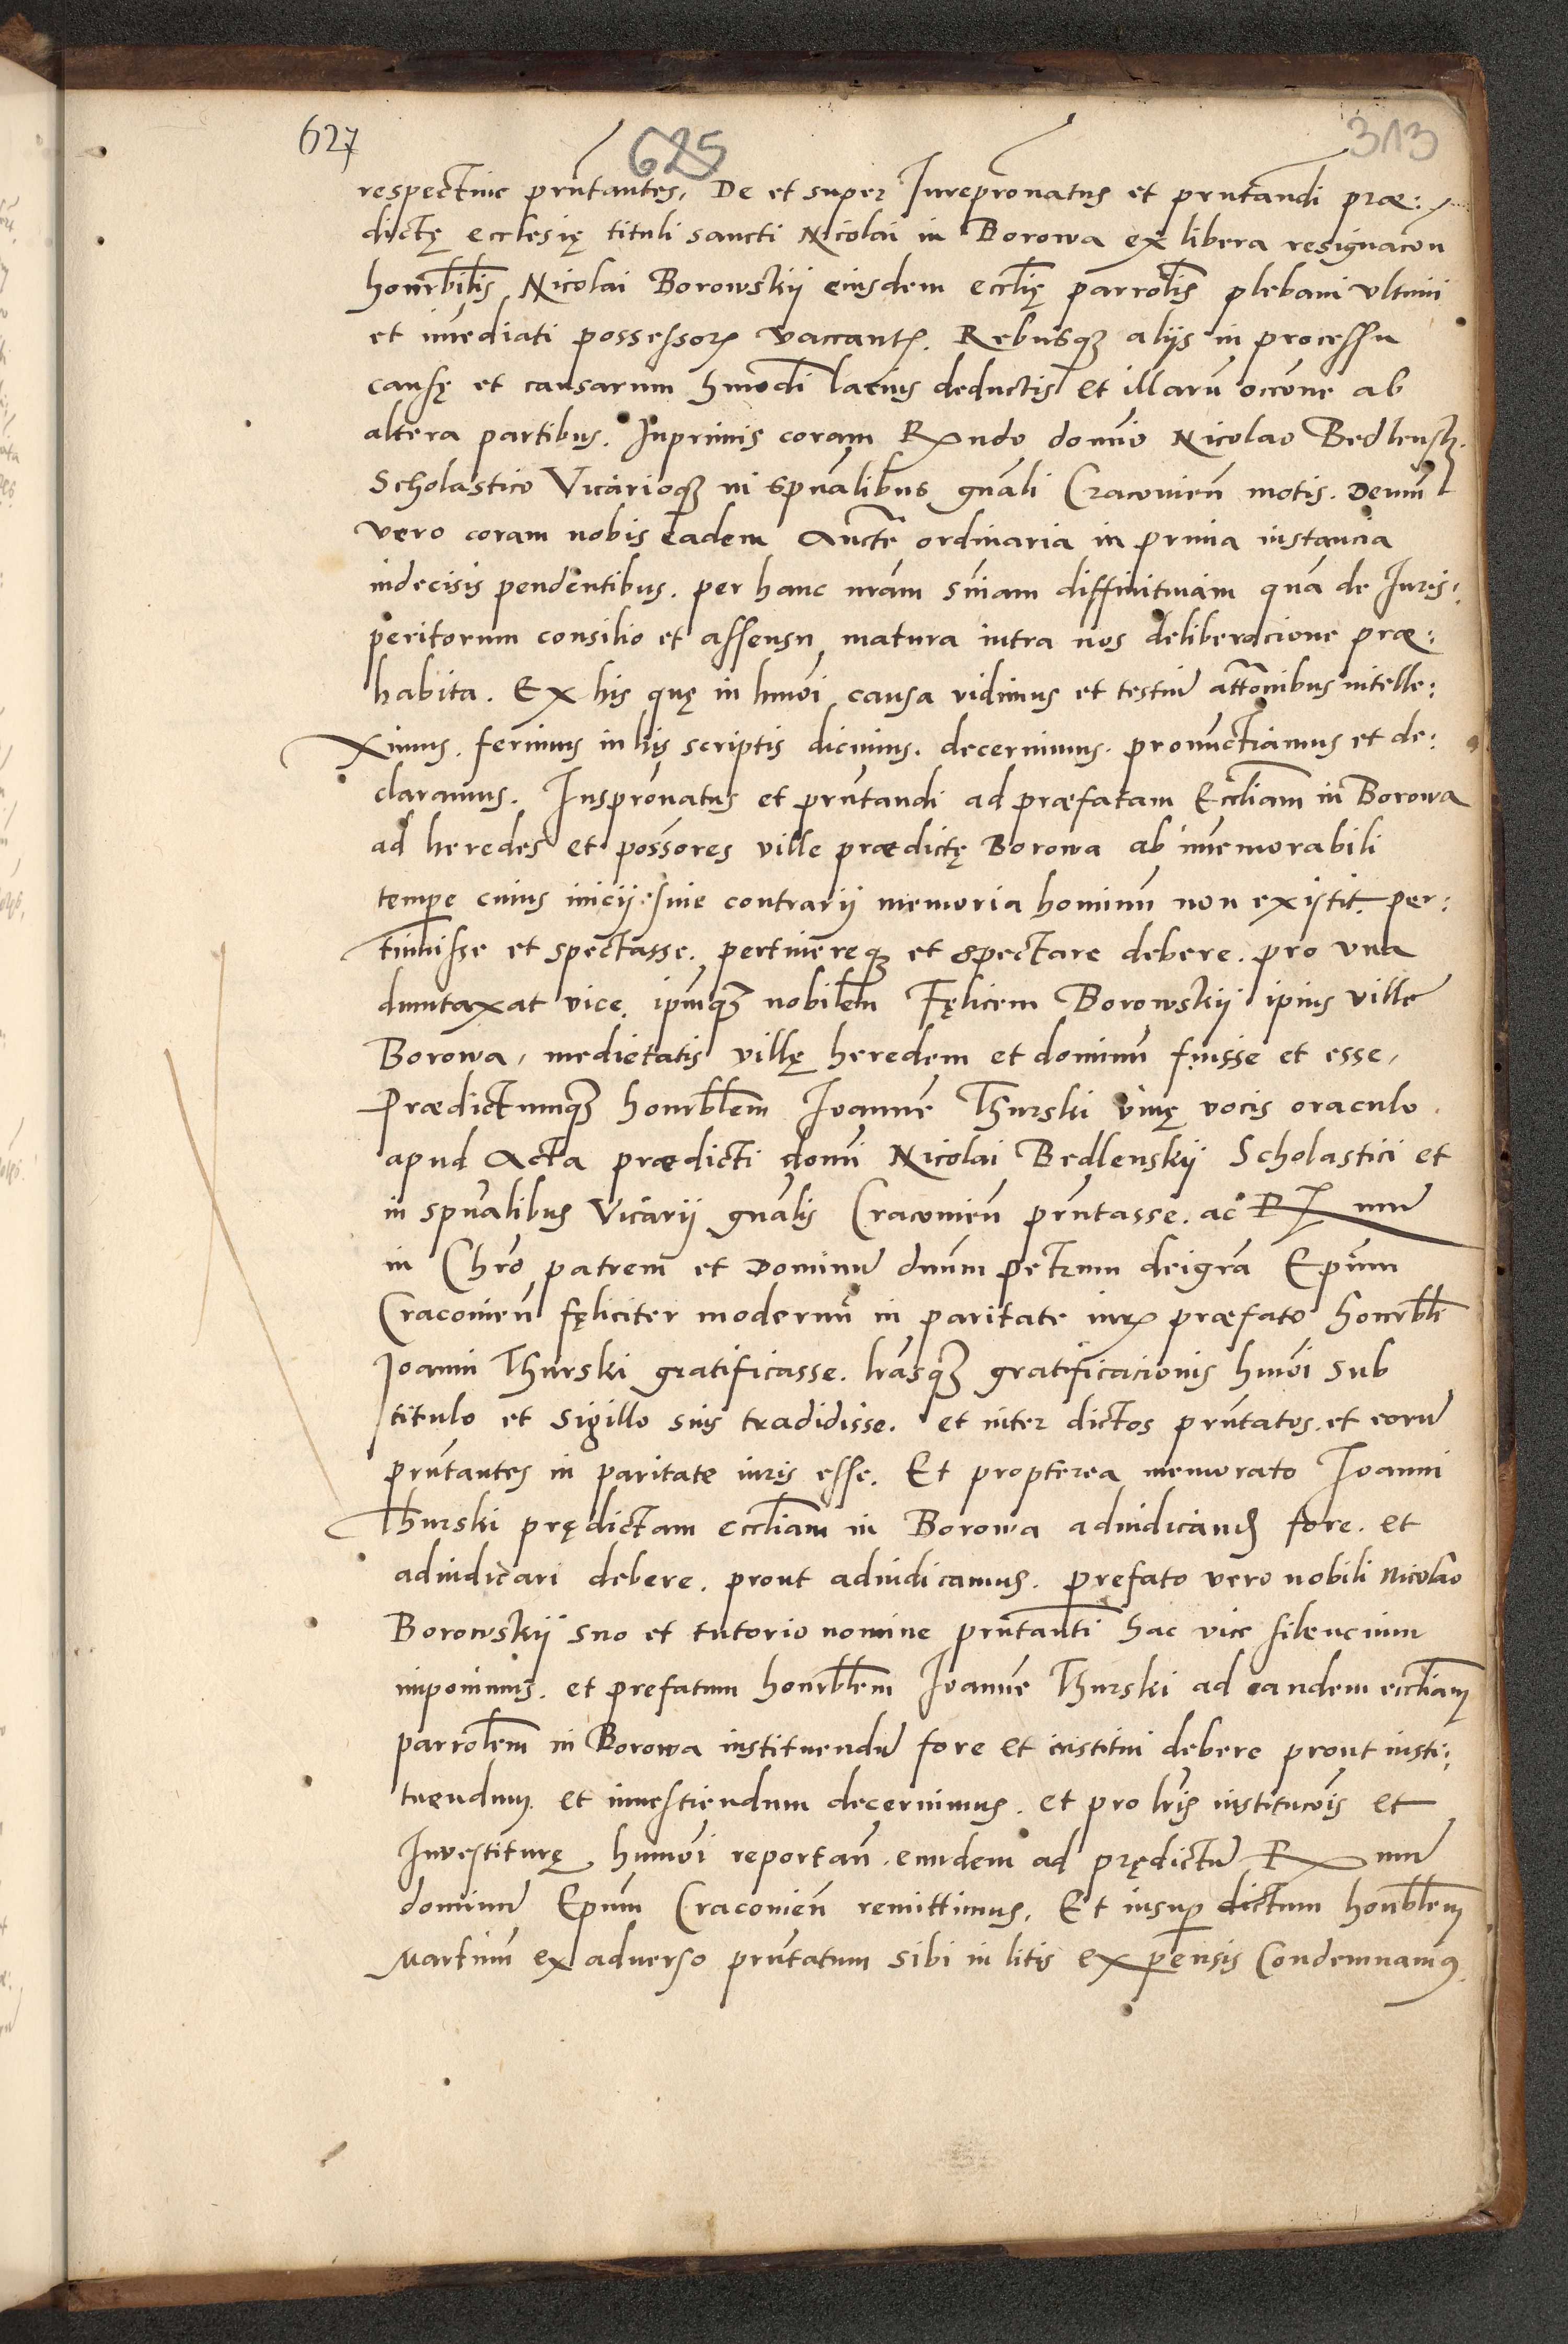 627
625
313
respective pñtantes, De et super Iurepronatus et pñtandi præ:
dictę ecclesię tituli sancti Nicolai in Borowa ex libera resignacõn
honrbilis Nicolai Borowskij eiusdem ecclię parrolis plebani vltimi
et im̃ediati possessorꝭ vaccantꝭ. Rebusqꝫ alijs in processu
causę et causarum hmodi lacius deductis et illarũ occõne ab
altera partibus. Inprimis coram Rndo domno Nicolao Bedlensk.
Scholastico Vicarioqꝫ in spũalibus gñali Cracovień motis. Demũ
vero coram nobis eadem Aucte ordinaria in prima instancia
indecisis pendentibus. per hanc nr̃am sñiam diffinitiuam quã de Iuris:
peritorum consilio et assensu matura intra nos deliberacione præ:
habita. Ex his quę in hmõi causa vidimus et testiũ attõnibus intelle:
ximus. ferimus in hijs scriptis dicimus. decernimus. pronunctiamus et de:
claramus. Iuspronatus et pñtandi ad præfatam Eccliam in Borowa
ad heredes et possores ville prædictę Borowa ab im̃emorabili
tempe cuius inicij siue contrarij memoria hominũ non existit. per:
tinuisse et spectasse. pertinereqꝫ et spectare debere. pro vna
dumtaxat vice. ip̃umqꝫ nobilem Fęlicem Borowskij ipius ville
Borowa, medietatis villę heredem et dominũ fuisse et esse,
Prædictumqꝫ honrblem Ioannẽ Thurski viuę vocis oraculo.
apud Acta prædicti domi Nicolai Bedlenskij Scholastici et
in spũalibus Vicarij gñalis Cracovień pñtasse. ac Rx mũ
in Chro patrem et Dominũ dñum Petrum deigrã Ep̃um
Cracovień fęliciter modernũ in paritate iurꝭ præfato honrbli
Ioanni Thurski gratificasse. lr̃asqꝫ gratificacionis hmõi sub
titulo et sigillo suis tradidisse. et inter dictos pñtatos. et eorũ
pñtantes in paritate iuris esse. Et propterea memorato Ioanni
Thurski prędictam eccliam in Borowa adiudicand̃ fore. et
adiudicari debere. prout adiudicamus. prefato vero nobili Nicolao
Borowskij suo et tutorio nomine pñtanti hac vice silencium
imponimus. et prefatum honrblem Ioannẽ Thurski ad eandem eccliam
parrolem in Borowa instituendũ fore et institui debere prout insti:
tuendum et inuestiendum decernimus. et pro lr̃is institucõis et
Inuestiturę humõi reportañ. eundem ad prędictũ Rx mũ
dominũ Ep̃um Cracovień remittimus, Et insup dictum honrblem
Martinũ ex aduerso pñtatum sibi in litis expensis Condemnamus.